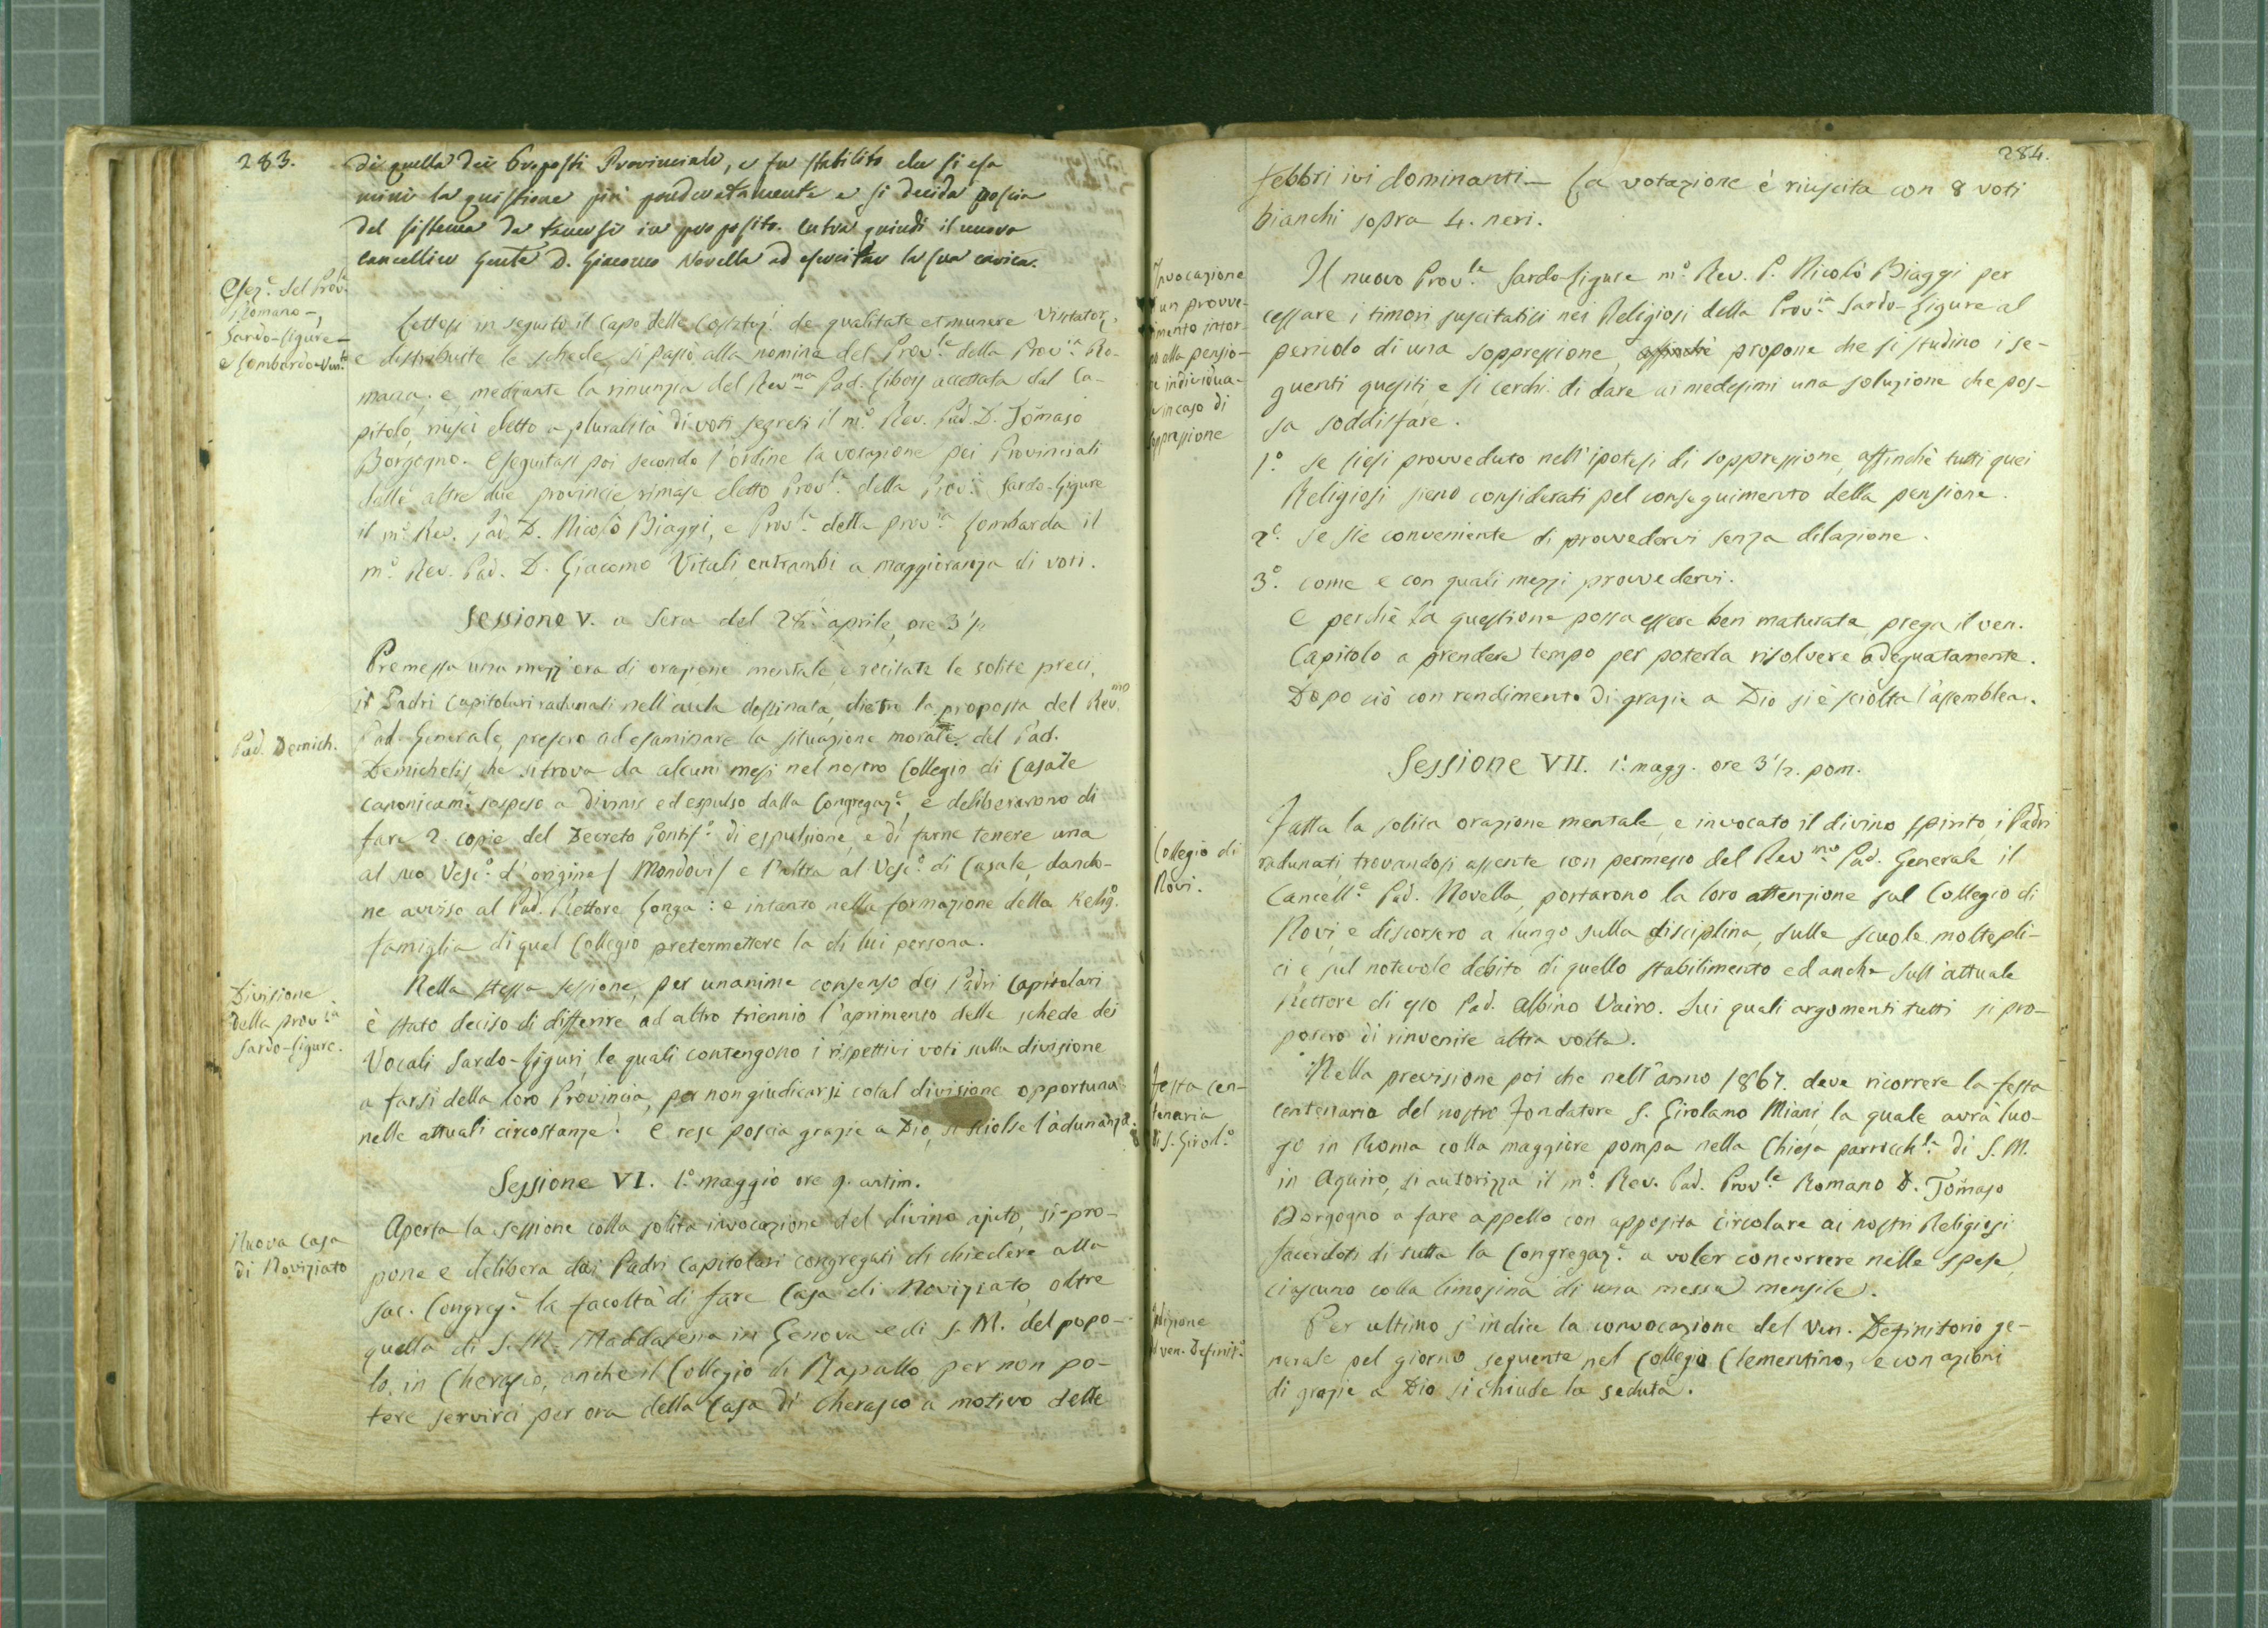 283.
di quella dei Preposti Provinciali, e fu stabilito che si esa
mini la quistione più ponderatamente e si decida poscia
del sistema da tenersi in proposito. Entra quindi il nuovo
Cancelliere Gen.le D. Giacomo Novella ad esercitare la sua carica.
Elez.e del Prov.le
Romano –
Sardo-Ligure –
e Lombardo-Ven.to
Lettosi in seguito il Capo delle Costituz.i de qualitate et munere Visitator.
e distribuite le schede, si passò alla nomina del Prov.le della Prov.ia Ro-
mana; e mediante la rinunzia del Rev.mo Pad. Libois accettata dal Ca-
pitolo, riuscì eletto a pluralità di voti segreti il m.o Rev. Pad. D. Tomaso
Borgogno. Eseguitasi poi secondo l'ordine la votazione pei Provinciali
delle altre due provincie rimase eletto Prov.le della Prov.ia Sardo-Ligure
il m.o Rev. Pad. D. Nicolò Biaggi, e Prov.le della prov.ia Lombarda il
m.o Rev. Pad. D. Giacomo Vitali, entrambi a maggioranza di voti.
Sessione V. a Sera del aprile, ore 3 1/2
Premessa una mezz'ora di orazione mentale, e recitate le solite preci,
i Padri Capitolari radunati nell'aula destinata, dietro la proposta del Rev.mo
Pad. Generale, presero ad esaminare la situazione morale del Pad.
Pad. Demich.
Demichelis, che si trova da alcuni mesi nel nostro Collegio di Casale
canonicam.e sospeso a divinis ed espulso dalla Congregaz.e, e deliberarono di
fare 2. copie del Decreto Pontif.o di espulsione, e di farne tenere una
al suo Vesc.o d'origine / Mondovì / e l'altra al Vesc.o di Casale, dando-
ne avviso al Pad. Rettore Gonga : e intanto nella formazione della Relig.a
famiglia di quel Collegio pretermettere la di lui persona.
Divisione
della prov.ia
Sardo-Ligure.
Nella stessa sessione, per unanime consenso dei Padri Capitolari
è stato deciso di differire ad altro triennio l'aprimento delle schede dei
Vocali Sardo-Liguri, le quali contengono i rispettivi voti sulla divisione
a farsi della loro Provincia, per non giudicarsi cotal divisione opportuna
nelle attuali circostanze. E rese poscia grazie a Dio, si sciolse l'adunanza.
Sessione VI. 1.o maggio ore 9. antim.
Nuova Casa
di Noviziato
Aperta la sessione colla solita invocazione del divino ajuto, si pro-
pone e delibera dai Padri Capitolari congregati di chiedere alla
sac. Congreg.e la facoltà di fare Casa di Noviziato, oltre
quella di S. M. Maddalena in Genova e di S. M. del popo-
lo, in Cherasco, anche il Collegio di Rapallo per non po-
tere servirci per ora della Casa di Cherasco a motivo delle
284.
febbri ivi dominanti – La votazione è riuscita con 8 voti
bianchi sopra 4. neri.
Invocazione
un provve-
mento intor-
no alla pensio-
individua-
in caso di
soppressione
Il nuovo Prov.le Sardo-Ligure m.o Rev. P. Nicolò Biaggi per
cessare i timori suscitatisi nei Religiosi della Prov.ia Sardo-Ligure al
pericolo di una soppressione, affinchè propone che si studino i se-
guenti quesiti, e si cerchi di dare ai medesimi una soluzione che pos-
sa soddisfare.
1.o se siesi provveduto nell'ipotesi di soppressione, affinchè tutti quei
Religiosi sieno considerati pel conseguimento della pensione.
2.o se sie conveniente di provvedervi senza dilazione.
3.o come e con quali mezzi provvedervi.
E perchè la questione possa essere ben maturata, prega il ven.
Capitolo a prendere tempo per poterla risolvere adeguatamente.
Dopo ciò con rendimento di grazie a Dio si è sciolta l'assemblea.
Sessione VII. 1.o magg. ore 3 1/2. pom.
Collegio di
Novi.
Fatta la solita orazione mentale, e invocato il divino spirito, i Padri
radunati, trovandosi assente con permesso del Rev.mo Pad. Generale il
Cancell.e Pad. Novella, portarono la loro attenzione sul Collegio di
Novi, e discorsero a lungo sulla disciplina, sulle scuole moltepli-
ci e sul notevole debito di quello stabilimento ed anche sull'attuale
Rettore di esso Pad. Albino Vairo. Sui quali argomenti tutti si pro-
posero di rinvenire altra volta.
Festa cen-
tenaria
di S. Girol.o
Nella previsione poi che nell'anno 1867. deve ricorrere la festa
centenaria del nostro Fondatore S. Girolamo Miani, la quale avrà luo-
go in Roma colla maggiore pompa nella Chiesa parrocch.le di S. M.
in Aquiro, si autorizza il m.o Rev. Pad. Prov.le Romano D. Tomaso
Borgogno a fare appello con apposita circolare ai nostri Religiosi
Sacerdoti di tutta la Congregaz.e a voler concorrere nelle spese,
ciascuno colla limosina di una messa mensile.
ven. Definit.o
Per ultimo s'indice la convocazione del Ven. Definitorio ge-
nerale pel giorno seguente nel Collegio Clementino, e con azioni
di grazie a Dio si chiude la seduta.